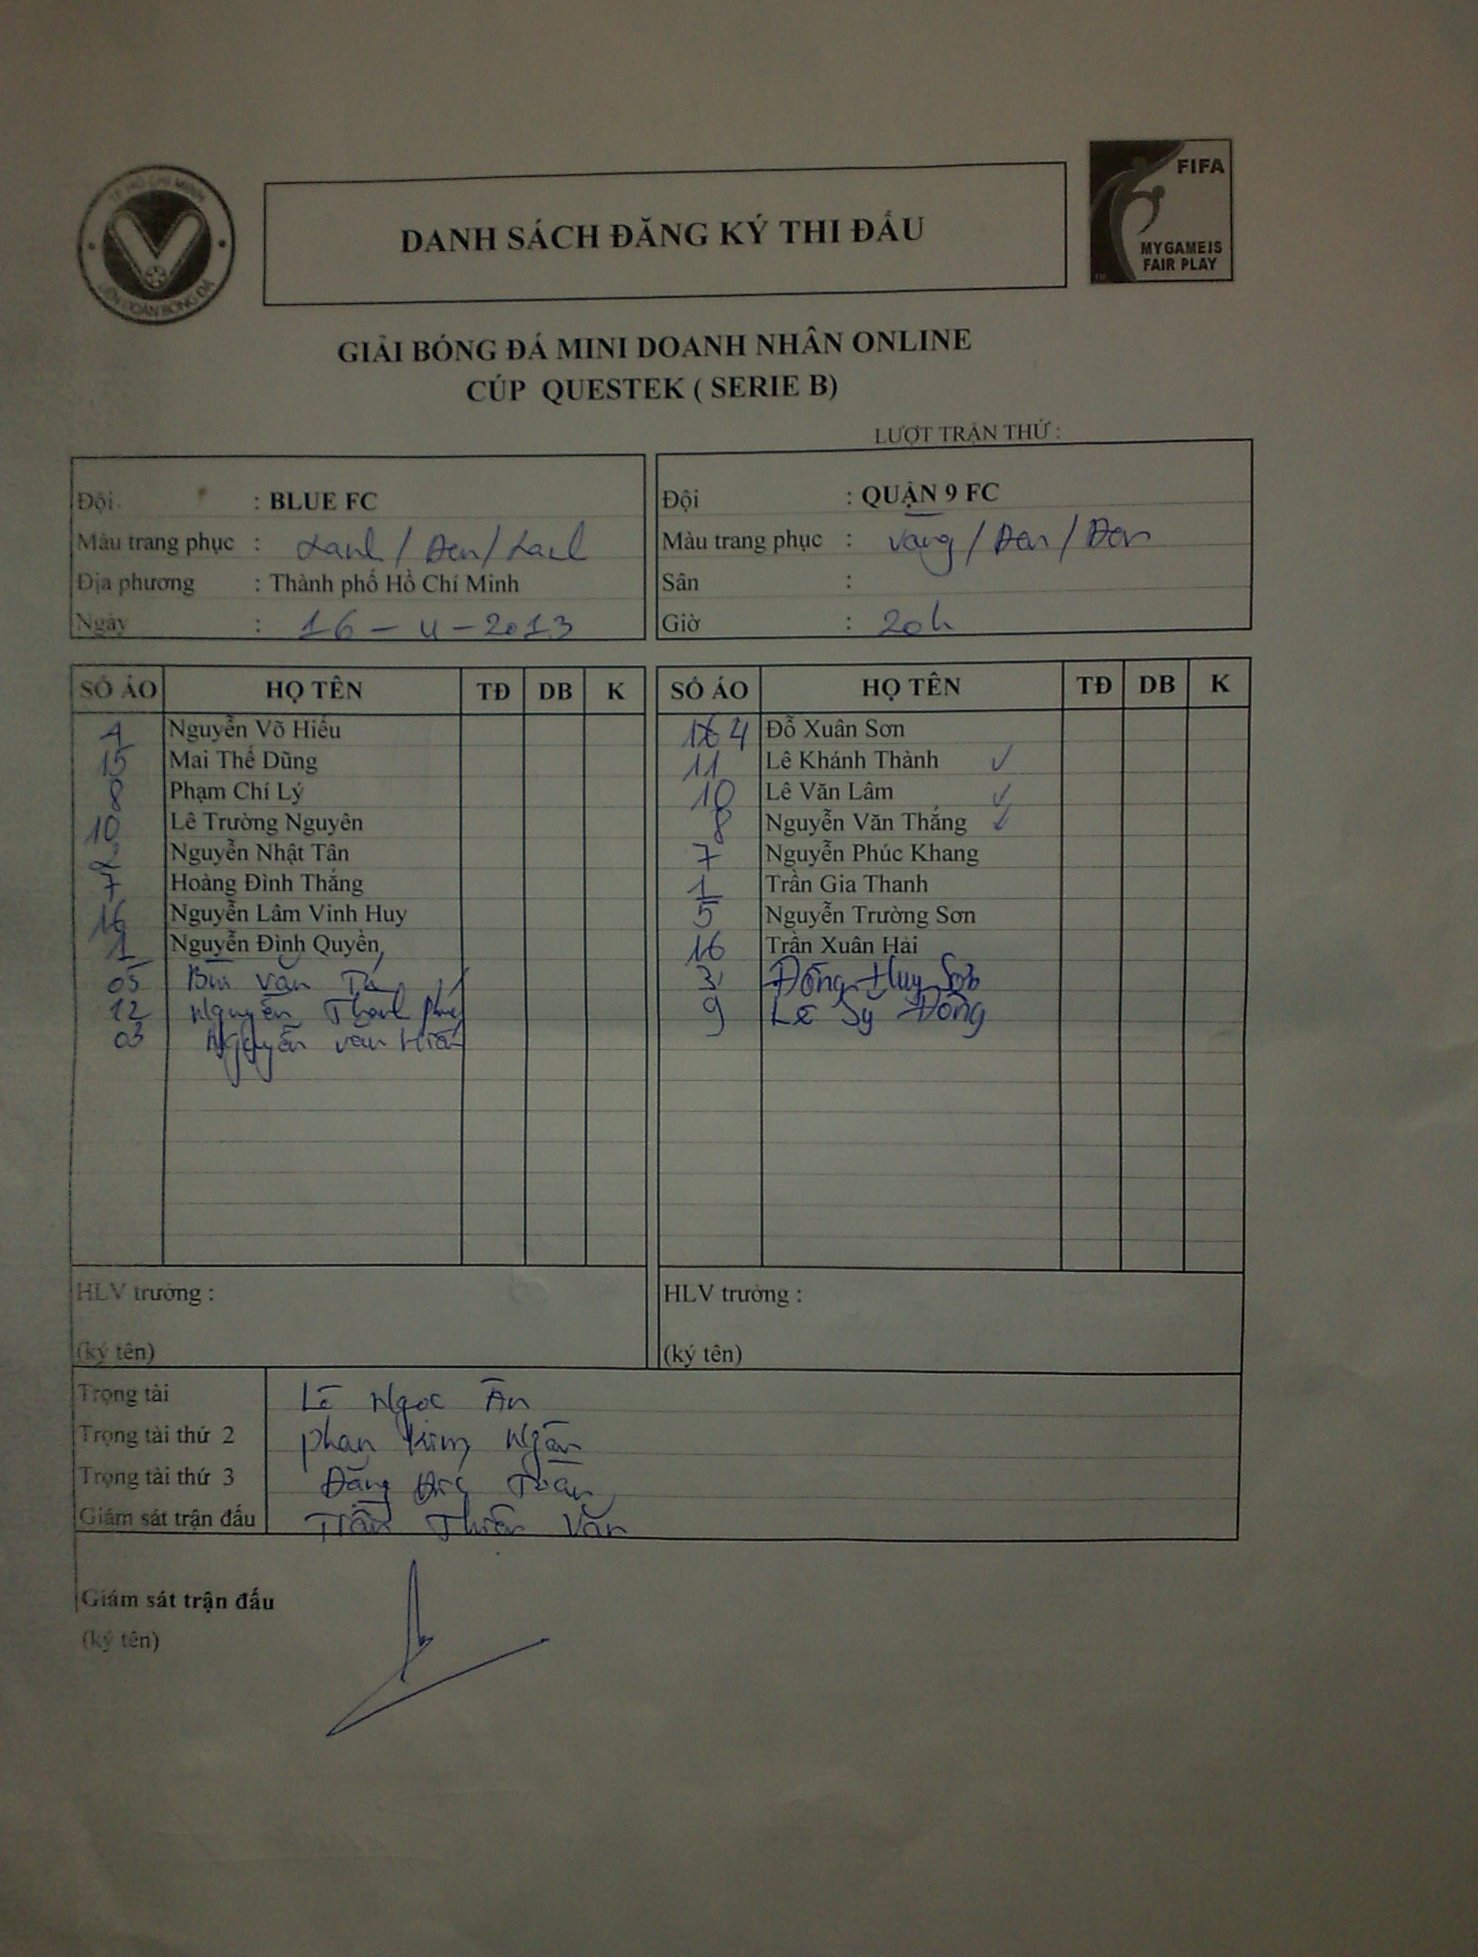 TP HỒ CHÍ MINH
LIÊN ĐOÀN BÓNG ĐÁ
DANH SÁCH ĐĂNG KÝ THI ĐẤU
FIFA
MY GAME IS
FAIR PLAY
GIẢI BÓNG ĐÁ MINI DOANH NHÂN ONLINE
CÚP QUESTEK ( SERIE B)
LƯỢT TRẬN THỨ :
Đội : BLUE FC
Màu trang phục : Xanh / Đen / Xanh
Địa phương : Thành phố Hồ Chí Minh
Ngày : 16 - 4 - 2013
Đội : QUẬN 9 FC
Màu trang phục : Vàng / Đen / Đen
Sân :
Giờ : 20h
SỐ ÁO HỌ TÊN TĐ DB K
Nguyễn Võ Hiếu
15 Mai Thế Dũng
8 Phạm Chí Lý
10 Lê Trường Nguyên
2 Nguyễn Nhật Tân
7 Hoàng Đình Thắng
16 Nguyễn Lâm Vinh Huy
1 Nguyễn Đình Quyền
05 Bùi Văn Tú
12 Nguyễn Thanh
03 Nguyễn Văn
SỐ ÁO HỌ TÊN TĐ DB K
4 Đỗ Xuân Sơn
11 Lê Khánh Thành ✓
10 Lê Văn Lâm ✓
8 Nguyễn Văn Thắng ✓
7 Nguyễn Phúc Khang
1 Trần Gia Thanh
5 Nguyễn Trường Sơn
16 Trần Xuân Hải
3 Đồng Huy Sơn
9 Lê Sỹ Đồng
HLV trưởng :
(ký tên)
HLV trưởng :
(ký tên)
Trọng tài Lê Ngọc Ân
Trọng tài thứ 2 Phan Kim Ngân
Trọng tài thứ 3 Đặng Đức Toàn
Giám sát trận đấu Trần Thiên Văn
Giám sát trận đấu
(ký tên)